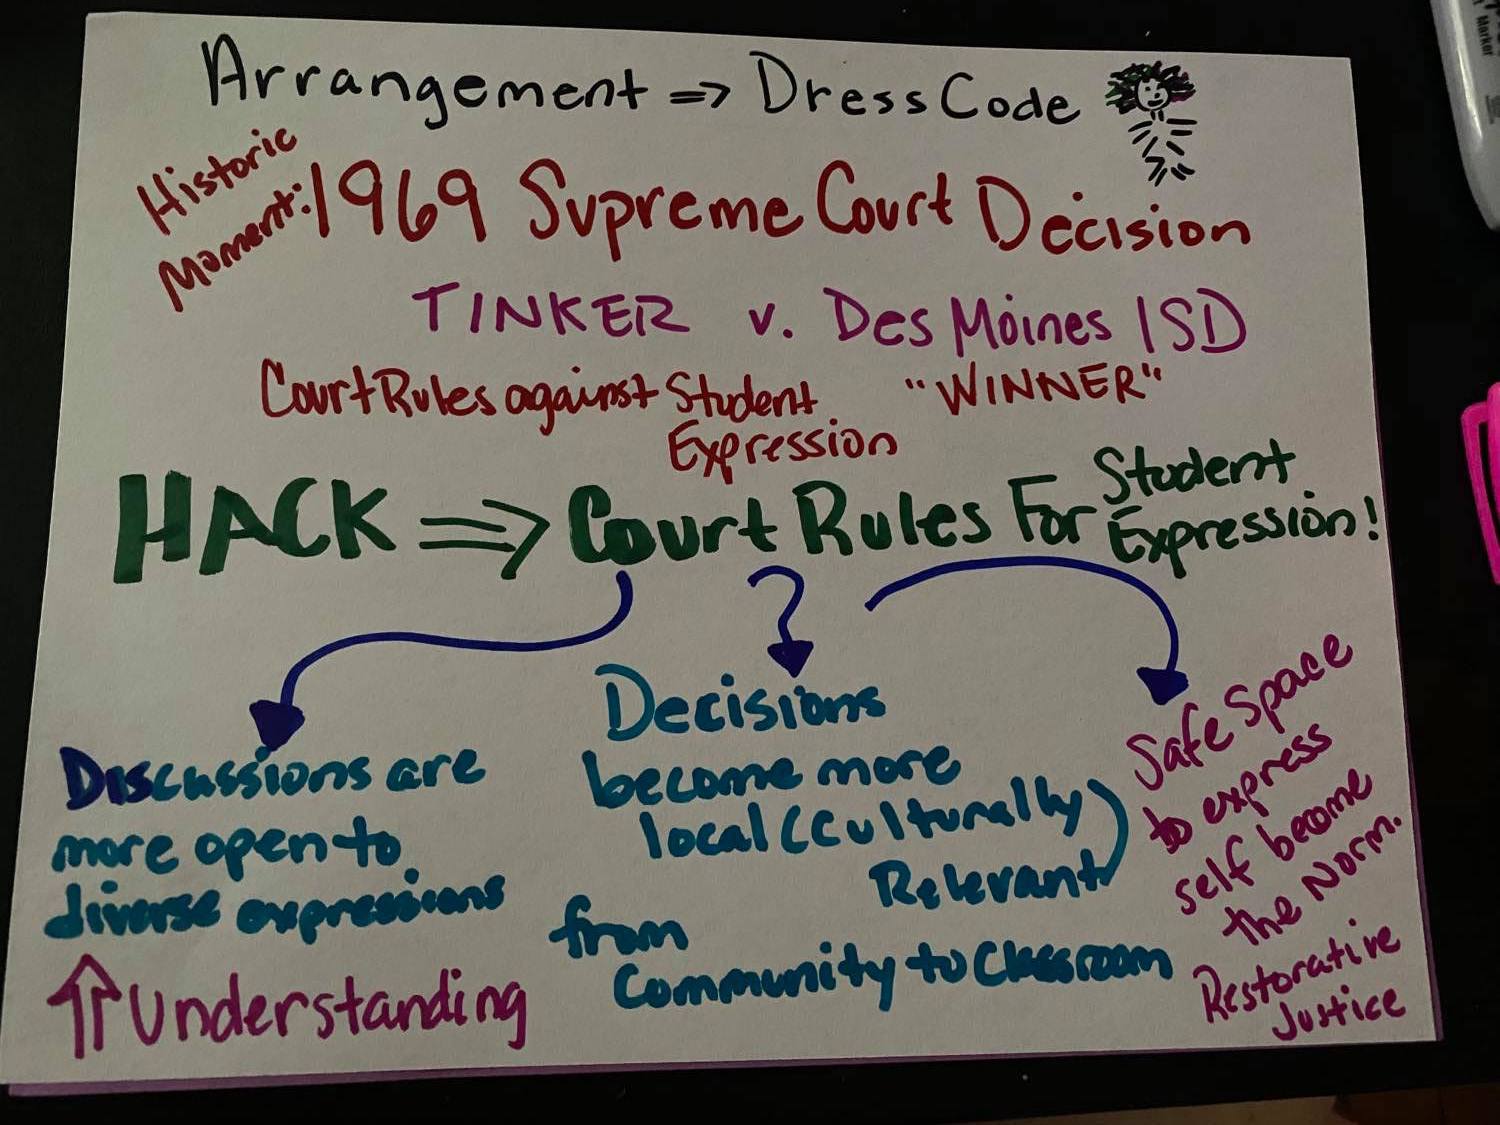 Arrangement => Dress Code
Historic
Moment: 1969 Supreme Court Decision
TINKER v. Des Moines ISD
Court Rules against Student
Expression
"WINNER"
HACK => Court Rules For Student
Expression!
Discussions are
more open to
diverse expressions
⇑ Understanding
Decisions
become more
local (Culturally
Relevant)
from
Community to Classroom
Safe Space
to express
self become
the Norm.
Restorative
Justice
Marker